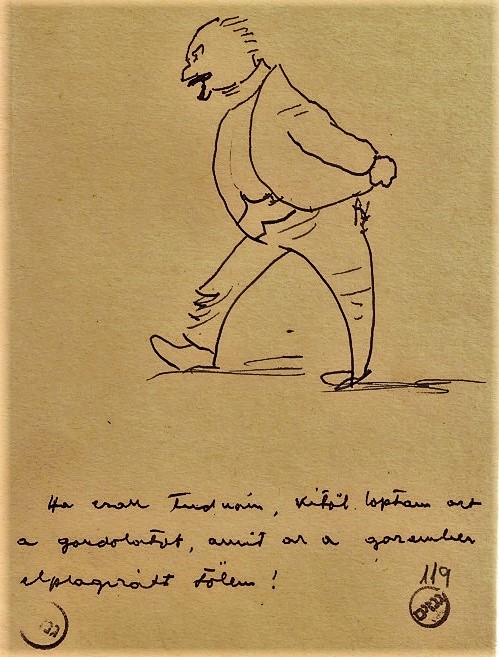 Ha csak tudnám, kitől loptam azt
a gondolatot, amit az a gazember
elplagizált tőlem!
119